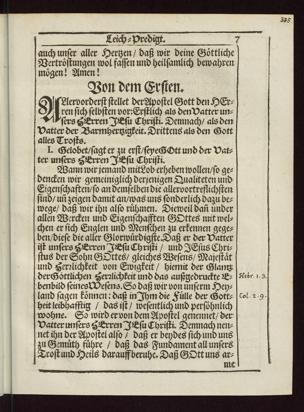 325
Leich-Predigt. 7
auch unser aller Hertzen/ daß wir deine Göttliche
Vertröstungen wol fassen und heilsamlich bewahren
mögen! Amen!
Von dem Ersten.
Allervorderst stellet der Apostel Gott den HEr-
ren sich selbsten vor: Erstlich als den Vatter un-
sers HErren JEsu Christi. Demnach/ als den
Vatter der Barmhertzigkeit. Drittens als den Gott
alles Trosts.
I. Gelobet/ sagt er zu erst/ seye GOtt und der Vat-
ter unsers HErren JEsu Christi.
Wann wir jemand mit Lob erheben wollen/ so ge-
dencken wir gemeinglich derjenigen Qualiteten und
Eigenschafften/ so an demselben die allervortrefflichsten
sind/ uß zeigen damit an/ was uns sonderlich dazu be-
wege/ daß wir ihn also rühmen. Dieweil dañ under
allen Wercken und Eigenschafften GOttes mit wel-
chen er sich Englen und Menschen zu erkennen gege-
ben/ diese die aller Glorwürdigste. Daß er der Vatter
ist unsers HErren JEsu Christi/ und JEsus Chri-
stus der Sohn GOttes/ gleiches Wesens/ Majestät
und Herrlichkeit von Ewigkeit/ hiemit der Glantz
der Göttlichen Herrlichkeit und das außgedruckte E-
benbild seines Wesens. So daß wir von unserm Hey-
land sagen können: daß in Ihm die Fülle der Gott-
heit leibhafftig/ das ist/ wesentlich und persöhnlich
wohne. So wird er von dem Apostel genennet/ der
Vatter unsers HErren JEsu Christi. Demnach nen-
net ihn der Apostel also/ daß er beydes sich und uns
zu Gemüth führe/ daß das Fundament all unsers
Trost und Heils darauff beruhe. Daß GOtt uns ar-
me
Hebr. 1. 3.
Col. 2. 9.